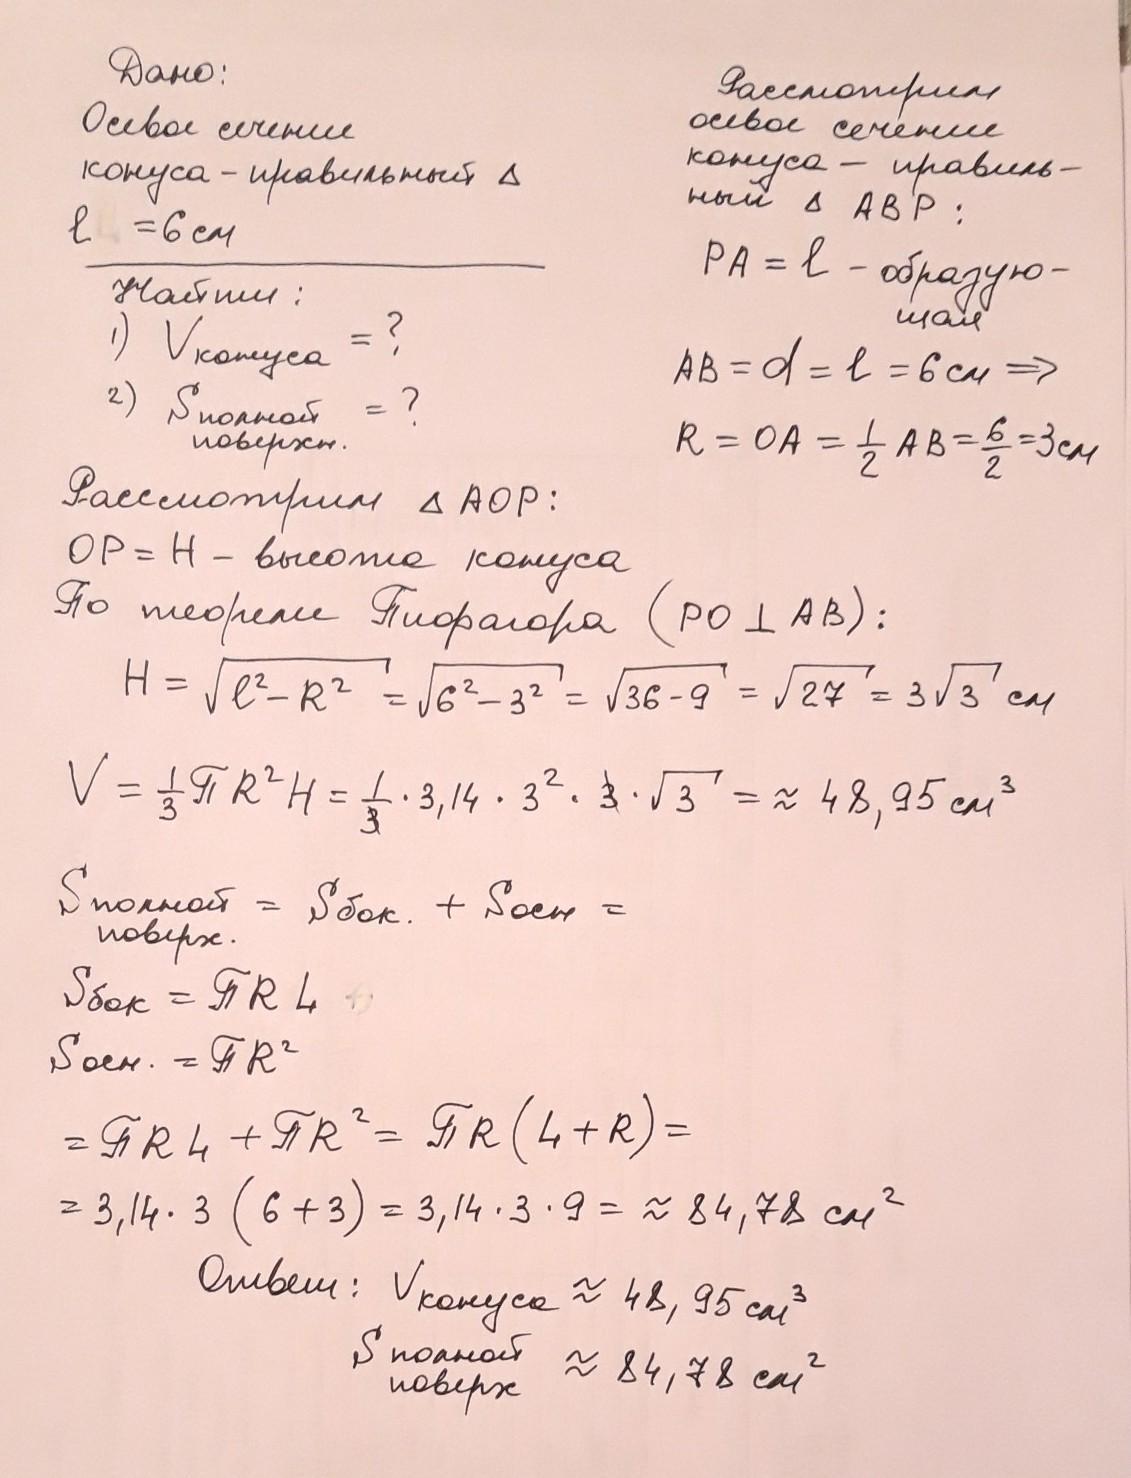 Дано:
Осевое сечение
конуса - правильный Δ
l = 6 см
Найти:
1) Vконуса = ?
2) Sполной поверхн. = ?
Рассмотрим
осевое сечение
конуса - правиль-
ный Δ ABP:
PA = l - образую-
щая
AB = d = l = 6 см ⇒
R = OA = 1/2 AB = 6/2 = 3 см
Рассмотрим Δ AOP:
OP = H - высота конуса
По теореме Пифагора (PO ⊥ AB):
H = √(l² - R²) = √(6² - 3²) = √(36 - 9) = √27 = 3√3 см
V = 1/3 π R² H = 1/3 · 3,14 · 3² · 3 · √3 = ≈ 48,95 см³
Sполной поверх. = Sбок. + Sосн =
Sбок = π R L
Sосн. = π R²
= π R L + π R² = π R (L + R) =
= 3,14 · 3 (6 + 3) = 3,14 · 3 · 9 = ≈ 84,78 см²
Ответ: Vконуса ≈ 48,95 см³
Sполной поверх ≈ 84,78 см²